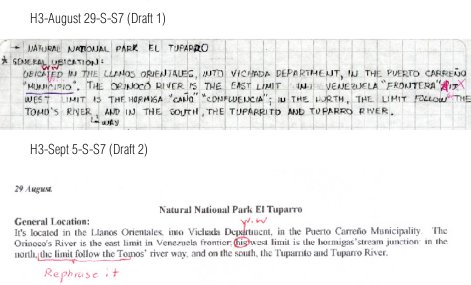 H3-August 29-S-S7 (Draft 1)
→ NATURAL NATIONAL PARK EL TUPARRO
* GENERAL UBICATION:
w w
UBICATED IN THE LLANOS ORIENTALES, INTO VICHADA DEPARTMENT, IN THE PUERTO CARREÑO
"MUNICIPIO". THE ORINOCO RIVER IS THE EAST LIMIT IN VENEZUELA "FRONTERA"
WEST LIMIT IS THE HORMIGA "CAÑO" "CONFLUENCIA"; IN THE NORTH, THE LIMIT FOLLOW THE
TOMO'S RIVER, AND IN THE SOUTH, THE TUPARRITO AND TUPARRO RIVER.
WAY
H3-Sept 5-S-S7 (Draft 2)
29 August.
Natural National Park El Tuparro
General Location:
w.w
It's located in the Llanos Orientales, into Vichada Department, in the Puerto Carreño Municipality. The
Orinoco's River is the east limit in Venezuela frontier; his west limit is the hormigas'stream junction: in the
north, the limit follow the Tomos' river way, and on the south, the Tuparrito and Tuparro River.
Rephrase it